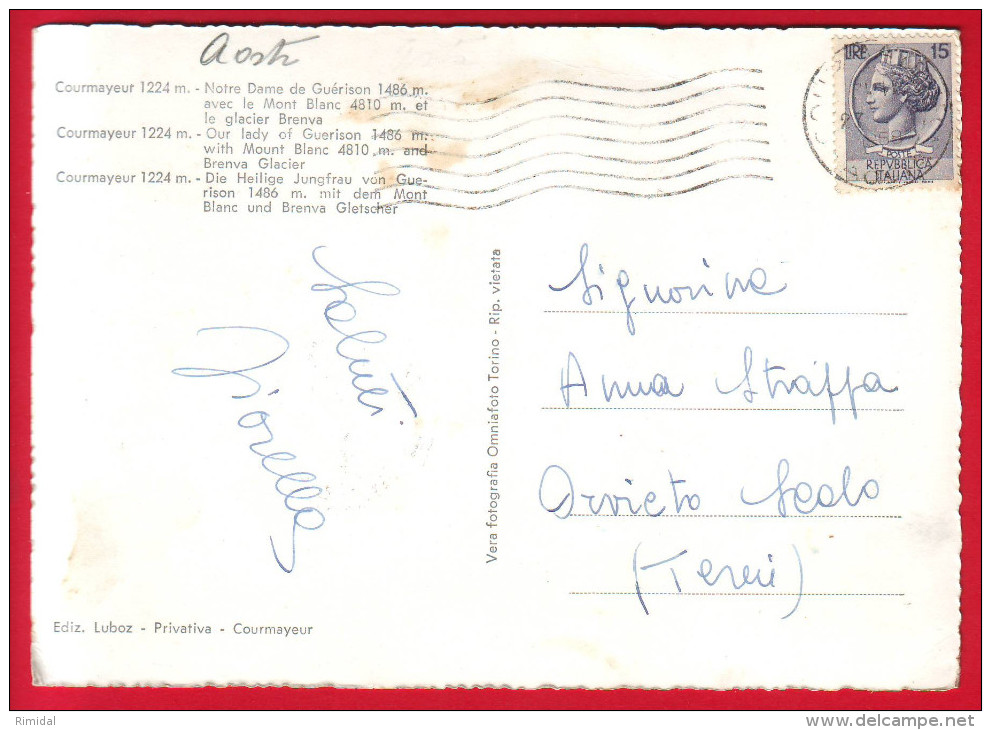 Aosta
Courmayeur 1224 m. - Notre Dame de Guérison 1486 m.
avec le Mont Blanc 4810 m. et
le glacier Brenva
Courmayeur 1224 m. - Our lady of Guerison 1486 m.
with Mount Blanc 4810 m. and
Brenva Glacier
Courmayeur 1224 m. - Die Heilige Jungfrau von Gue-
rison 1486 m. mit dem Mont
Blanc und Brenva Gletscher
LIRE 15
POSTE
REPVBBLICA
ITALIANA
Saluti
Fiorella
Vera fotografia Omniafoto Torino - Rip. vietata
Signorina
Anna Strappa
Orvieto Scalo
(Terni)
Ediz. Luboz - Privativa - Courmayeur
Rimidal
www.delcampe.net